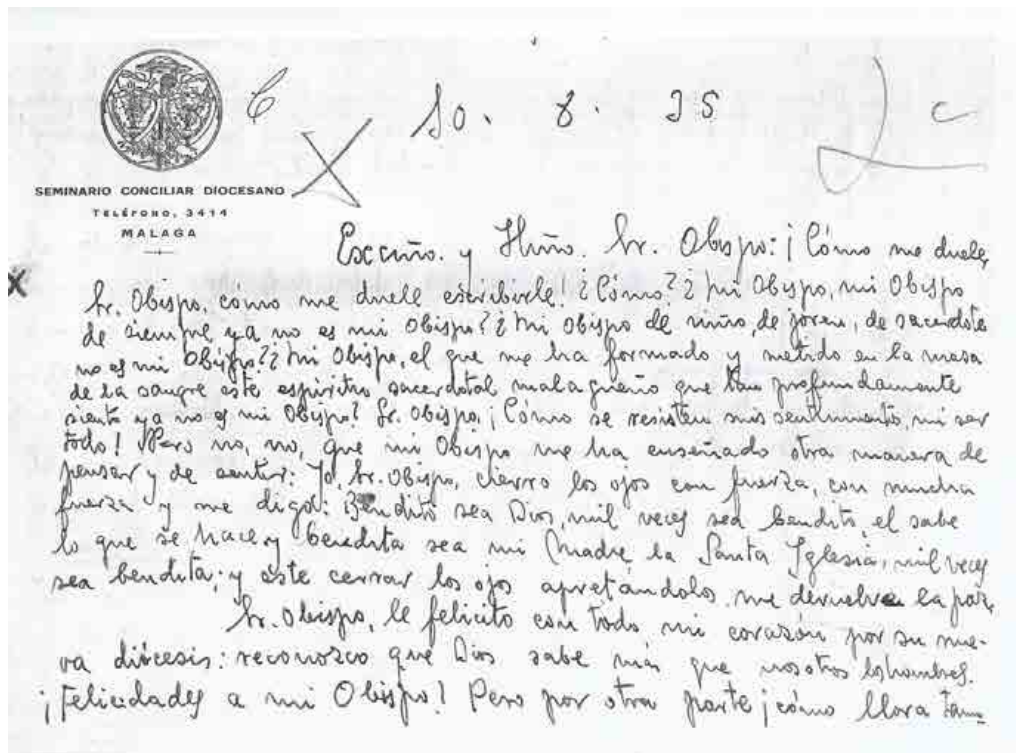 10. 8. 35
SEMINARIO CONCILIAR DIOCESANO
TELÉFONO, 3414
MALAGA
Excmo. y Ilmo. Sr. Obispo: ¡Cómo me duele,
Sr. Obispo, como me duele escribirle! ¿Cómo? ¿Mi Obispo, mi Obispo
de siempre ya no es mi Obispo? ¿Mi Obispo de niño, de joven, de sacerdote
no es mi Obispo? ¿Mi Obispo, el que me ha formado y metido en la masa
de la sangre este espíritu sacerdotal malagueño que tan profundamente
siento ya no es mi Obispo? Sr. Obispo, ¡Cómo se resisten mis sentimientos, mi ser
todo! Pero no, no, que mi Obispo me ha enseñado otra manera de
pensar y de sentir: Yo, Sr. Obispo, cierro los ojos con fuerza, con mucha
fuerza y me digo: Bendito sea Dios, mil veces sea bendito, el sabe
lo que se hace y bendita sea mi Madre la Santa Iglesia, mil veces
sea bendita; y este cerrar los ojos apretándolos me devuelve la paz.
Sr. Obispo, le felicito con todo mi corazón por su nue-
va diócesis: reconozco que Dios sabe más que nosotros los hombres.
¡Felicidades a mi Obispo! Pero por otra parte ¡cómo llora tam-